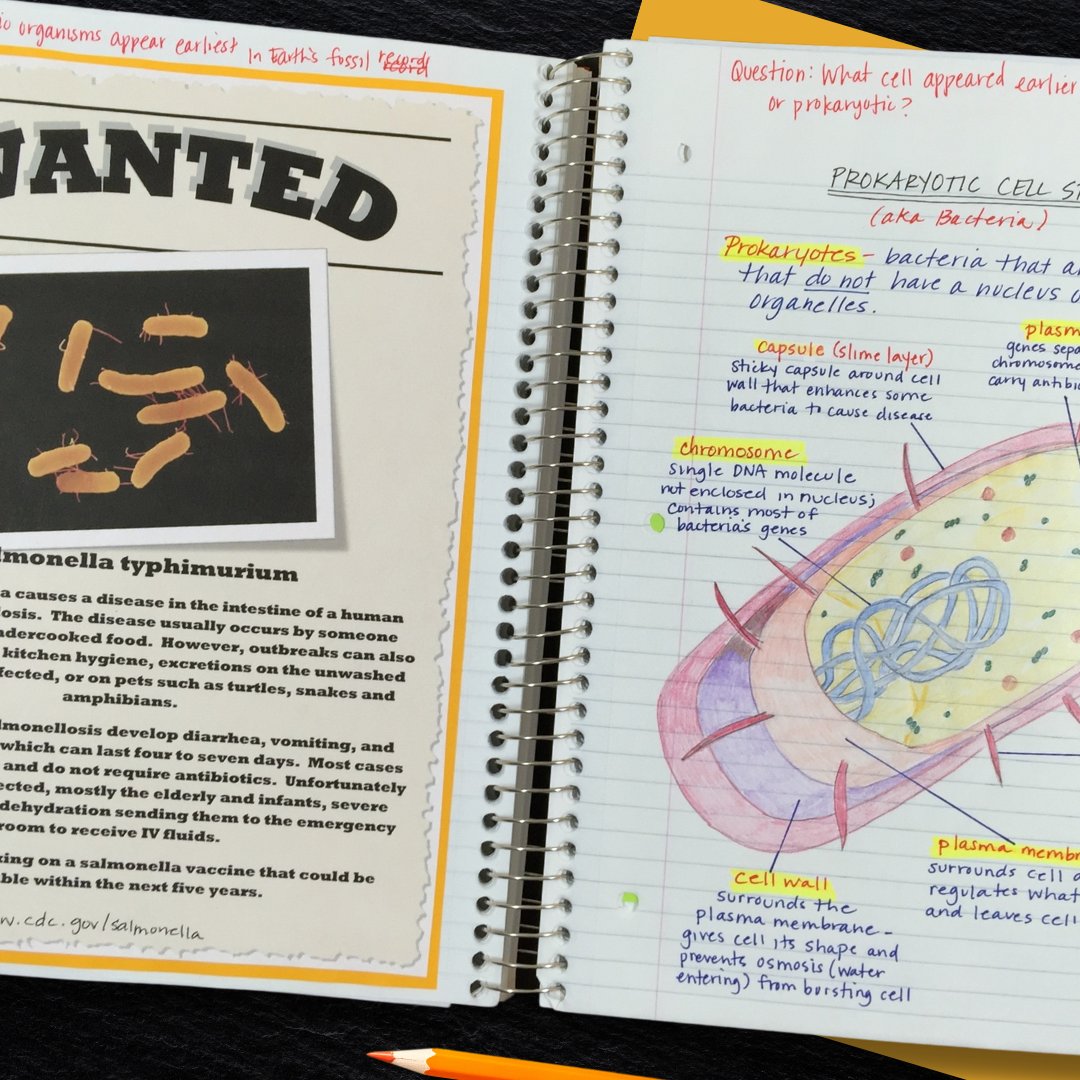 organisms appear earliest in Earth's fossil record
WANTED
typhimurium
a causes a disease in the intestine of a human
The disease usually occurs by someone
food. However, outbreaks can also
kitchen hygiene, excretions on the unwashed
or on pets such as turtles, snakes and
amphibians.
develop diarrhea, vomiting, and
which can last four to seven days. Most cases
and do not require antibiotics. Unfortunately
mostly the elderly and infants, severe
dehydration sending them to the emergency
room to receive IV fluids.
on a salmonella vaccine that could be
within the next five years.
.cdc.gov/salmonella
Question: What cell appeared earlier
or prokaryotic?
PROKARYOTIC CELL
(aka Bacteria)
Prokaryotes - bacteria that
that do not have a nucleus
organelles.
capsule (slime layer)
sticky capsule around cell
wall that enhances some
bacteria to cause disease
genes
chromosome
carry
chromosome
single DNA molecule
not enclosed in nucleus;
contains most of
bacteria's genes
plasma
surrounds cell
regulates what
and leaves cell
cell wall
surrounds the
plasma membrane -
gives cell its shape and
prevents osmosis (water
entering) from bursting cell